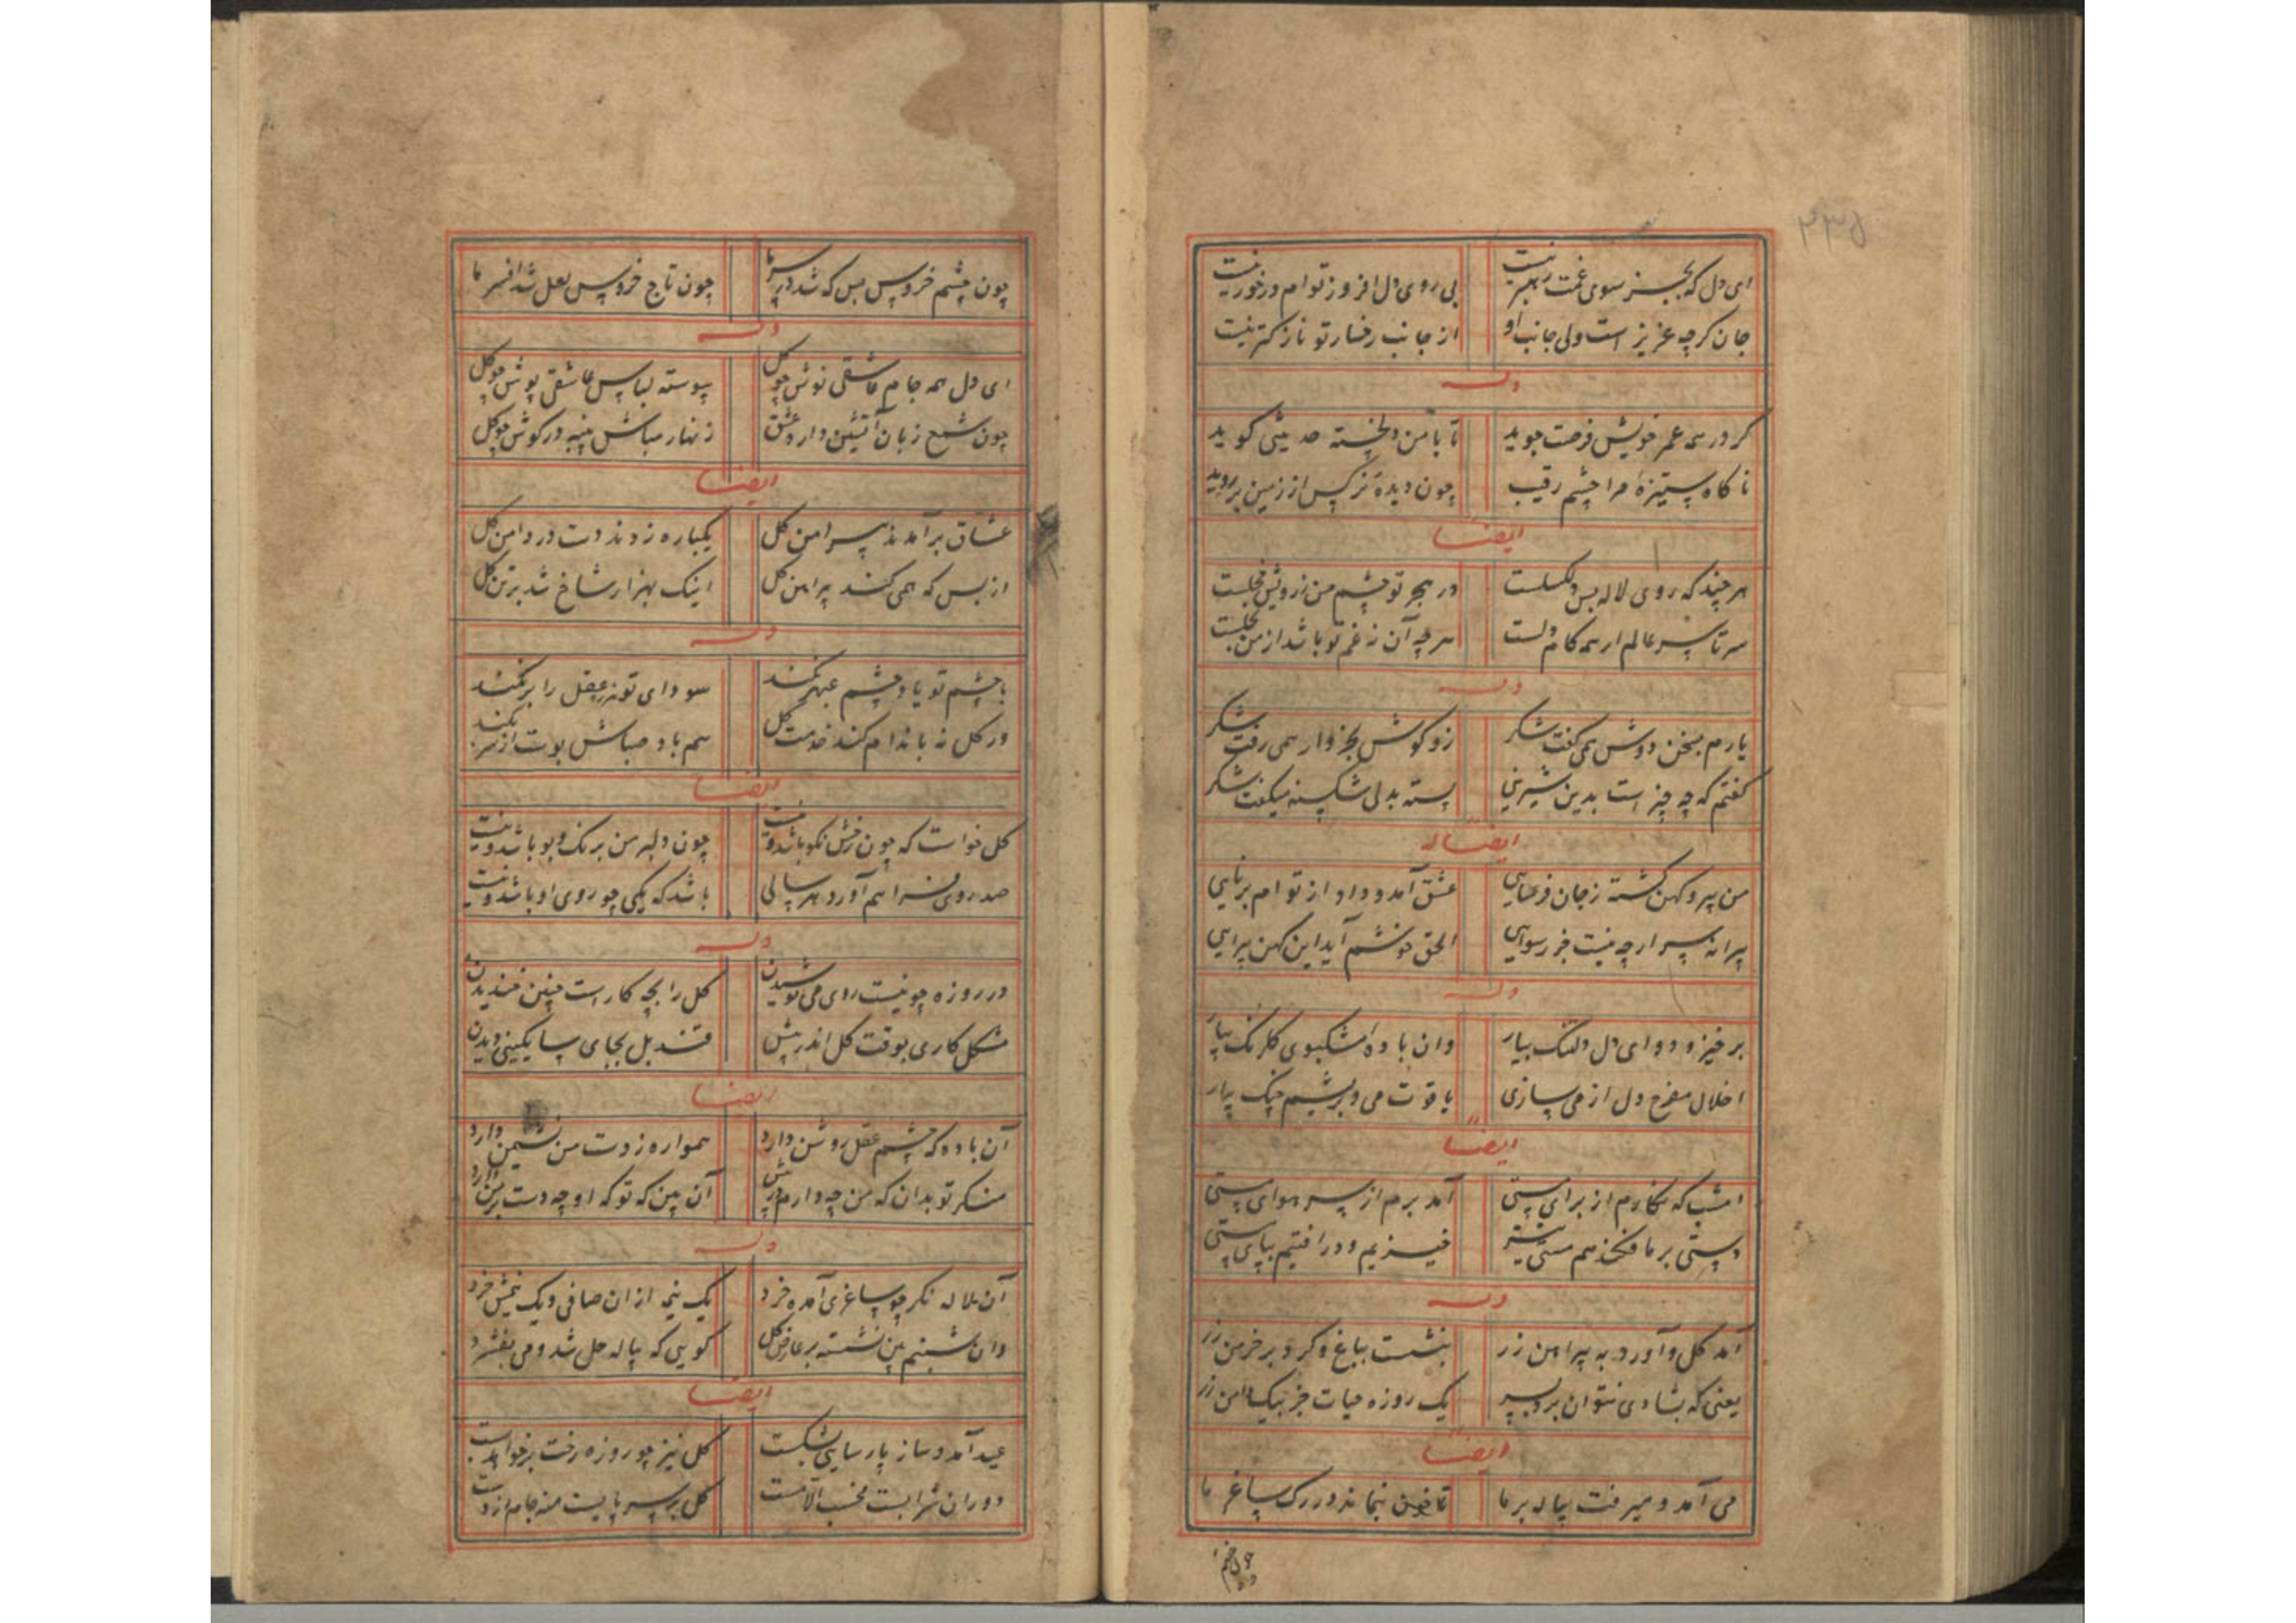 ای دل که بجز سوی غمت رهبر نیست بی روی دل افروز توام در خور نیست
جان کرچه عزیز است ولی جانب او از جانب رخسار تو نازکتر نیست
وله
کر در همه عمر خویش فرصت جوید تا با من دلخسته حدیثی کوید
ناکاه ستیزهٔ مرا چشم رقیب چون دیدهٔ نرکس از زمین بر روید
ایضا
هر چند که روی لاله بس دلکسلست در هجر تو چشم من ز رویش خجلست
سر تا سر عالم ار همه کام دلست هر چه آن نه غم تو باشد از من بحلست
وله
یارم بسخن دوش همی کفت شکر زو کوش بخروار همی رفت شکر
کفتم که چه چیز است بدین شیرینی پسته بدلی شکسته میکفت شکر
ایضا له
من پیر و کهن کشته ز جان فرسایی عشق آمد و داد از تو ام برنایی
پیرانه سر ار چه نیست جز رسوایی الحق خوشم آید این کهن پیرایی
وله
برخیز و دوای دل دلتنک بیار وان باده مشکبوی کلرنک بیار
اخلال مفرح دل از می سازی یاقوت می و بریشم چنک بیار
ایضا
امشب که نکارم از برای مستی آمد برم از سر هوای مستی
دستی بر ما فکند هم مستی خیزیم و در افتیم بپای مستی
وله
آمد کل و آورد به پیراهن زر بنشست بباغ و کرد بر خرمن زر
یعنی که بشادی نتوان برد بسر یک روزه حیات جز بیک دامن زر
ایضا
می آمد و میرفت پیاله بر ما تا خون نماند در رک ساغر ما
چون چشم
چون چشم خروس بس که شد در سر ما چون تاج خروس لعل شد افسر ما
وله
ای دل همه جام عاشقی نوش چو کل پیوسته لباس عاشقی پوش چو کل
چون شمع زبان آتشین دارد عشق زنهار مباش پنبه در کوش چو کل
ایضا
عشاق برآمدند پیرامن کل یکباره زدند دست در دامن کل
از بس که همی کنند پیراهن کل اینک بهزار شاخ شد بر تن کل
وله
با چشم تو یاد چشم عبهر نکند سودای تو نه ز عقل را بر نکند
ور کل نه باندام کند خدمت کل هم باد صباش پوست از سر بکند
ایضا
کل خواست که چون رخش نکو باشد و نیست چون دلبر من برنک و بو باشد و نیست
صد روی فراهم آورد هر سالی باشد که یکی چو روی او باشد و نیست
وله
در روزه چو نیست روی می نوشیدن کل را بچه کار است چنین خندیدن
مشکل کاری بوقت کل اندر پیش قندیل بجای ساتکینی دیدن
ایضا
آن باده که چشم عقل روشن دارد همواره ز دست من نشیمن دارد
منکر تو بدان که من چه دارم در پیش آن بین که تو که او چه دست بر من دارد
وله
آن لاله نکر چو ساغری آمده خرد یک نیمه ازان صافی و یک نیمش درد
وان شبنم بین نشسته بر عارض کل کویی که پیاله حل شد و می بفشرد
ایضا
عید آمد و ساز پارسایی بشکست کل نیز چو روزه رخت بر خواهد بست
دوران شرابست مخسب الا مست کل بر سر پایست منه جام از دست